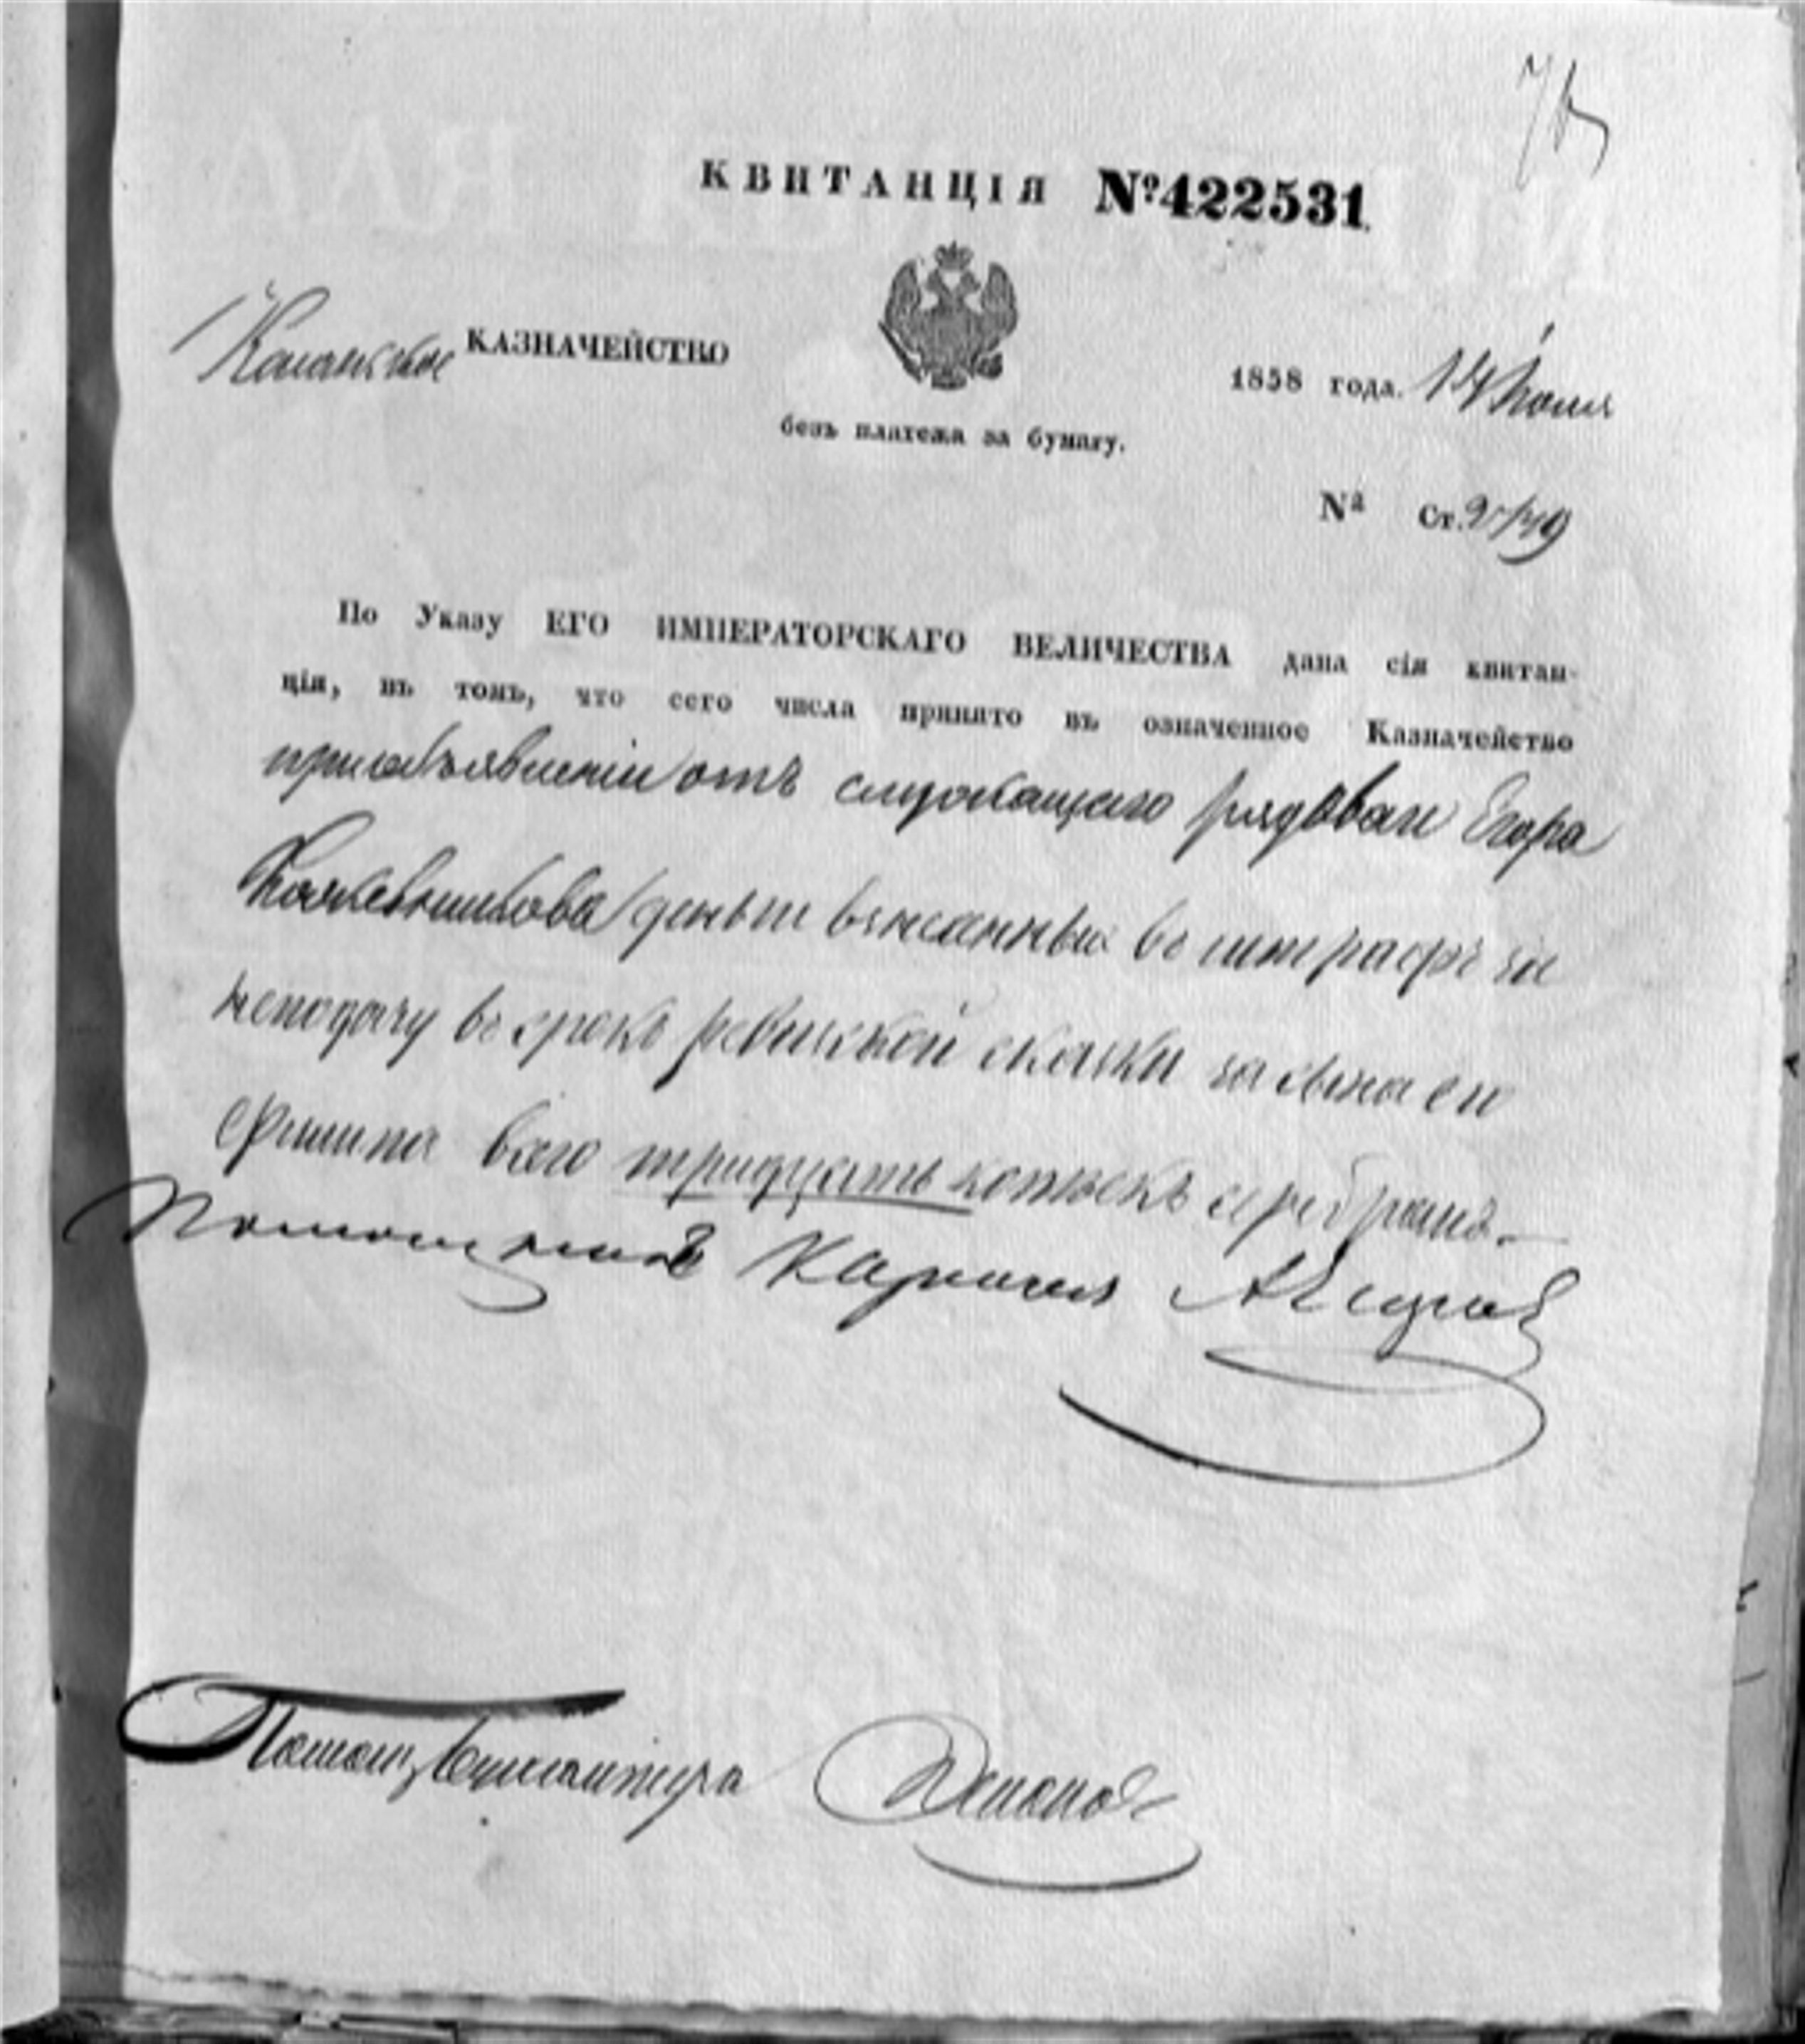 КВИТАНЦІЯ №422531
КАЗНАЧЕЙСТВО
1858 года. 14 Іюля
безъ платежа за бумагу.
№ Ст.
По Указу ЕГО ИМПЕРАТОРСКАГО ВЕЛИЧЕСТВА дана сія квитан-
ція, въ томъ, что сего числа принято въ означенное Казначейство
при объявленіи отъ служащаго рядоваго Егора
Кожевникова деньги взысканныя въ штрафъ за
неподачу въ срокъ ревизской сказки за сына его
Филипа всего тридцать копѣекъ серебромъ.
Помощникъ
Помощ Бухгалтера